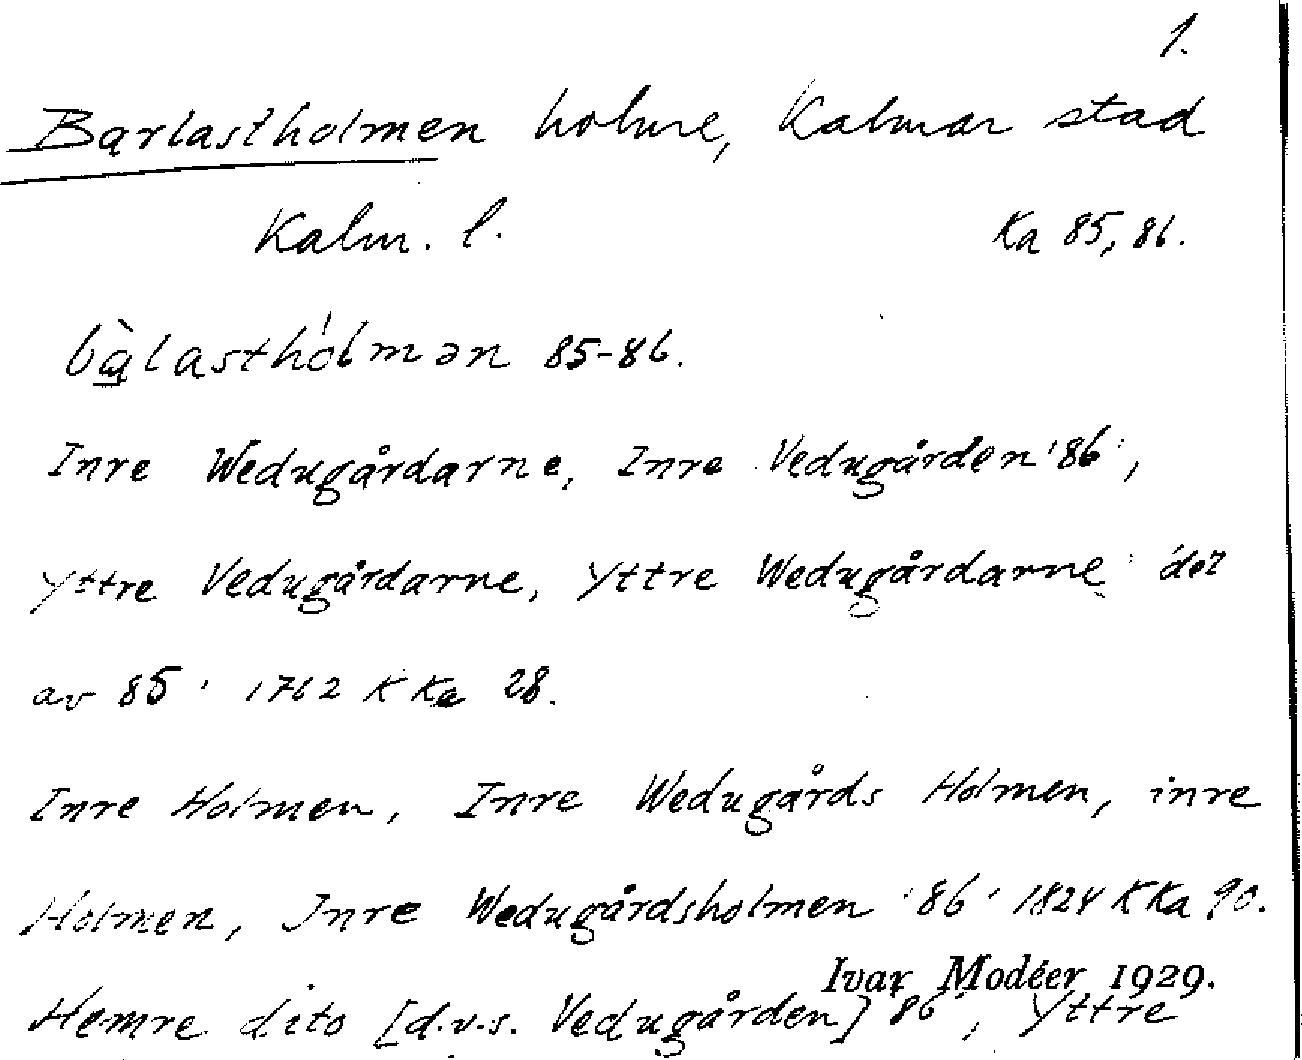 1.
Barlastholmen holme, Kalmar stad
Kalm. l. Ka 85, 86.
bà̱lasthólmən 85-86.
Inre Wedugårdarne, Inre Vedugården '86',
Yttre Vedugårdarne, Yttre Wedugårdarne 'del
av 85' 1762 K Ka 28.
Inre Holmen, Inre Wedugårds Holmen, inre
Holmen, Inre Wedugårdsholmen '86' 1824 K Ka 90.
Ivar Modéer 1929.
Hemre dito [d.v.s. Vedugården] 86', Yttre